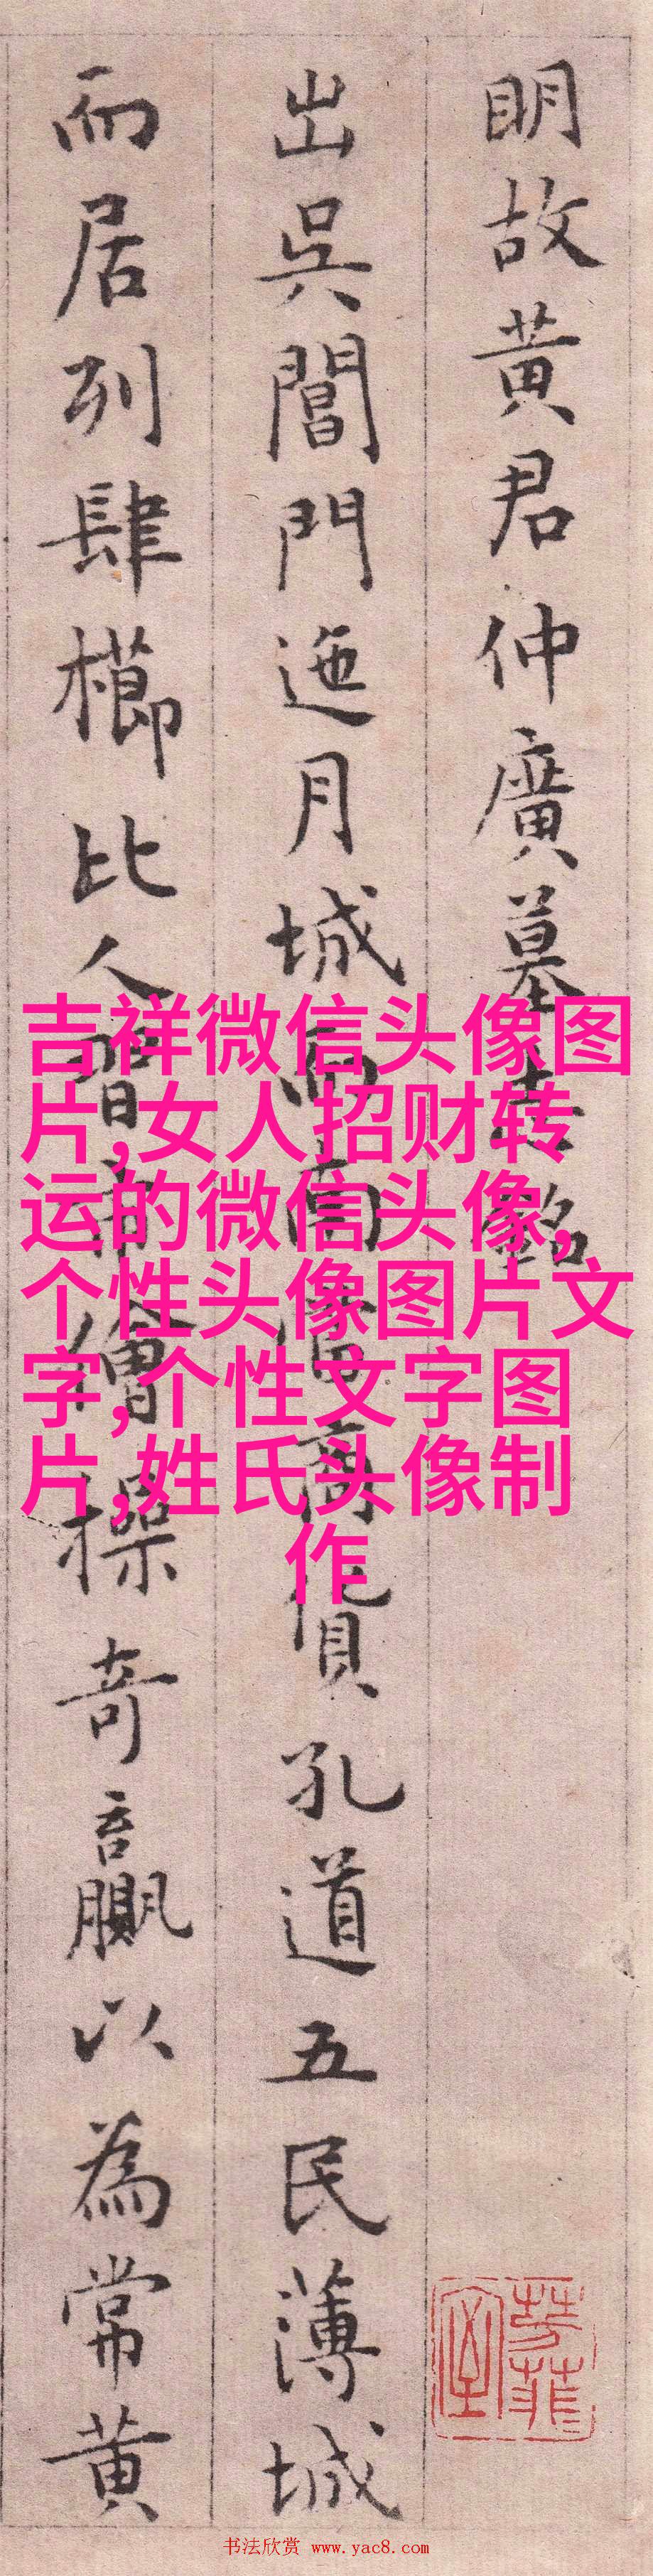 明故黄君仲廣墓志銘
出吳閶門迤月城而南富商價孔道五民薄城
而居列肆櫛比人習市儈操奇贏以為常黄
吉祥微信头像图
片,女人招财转
运的微信头像,
个性头像图片文
字,个性文字图
片,姓氏头像制
作
书法欣赏 www.yac8.com